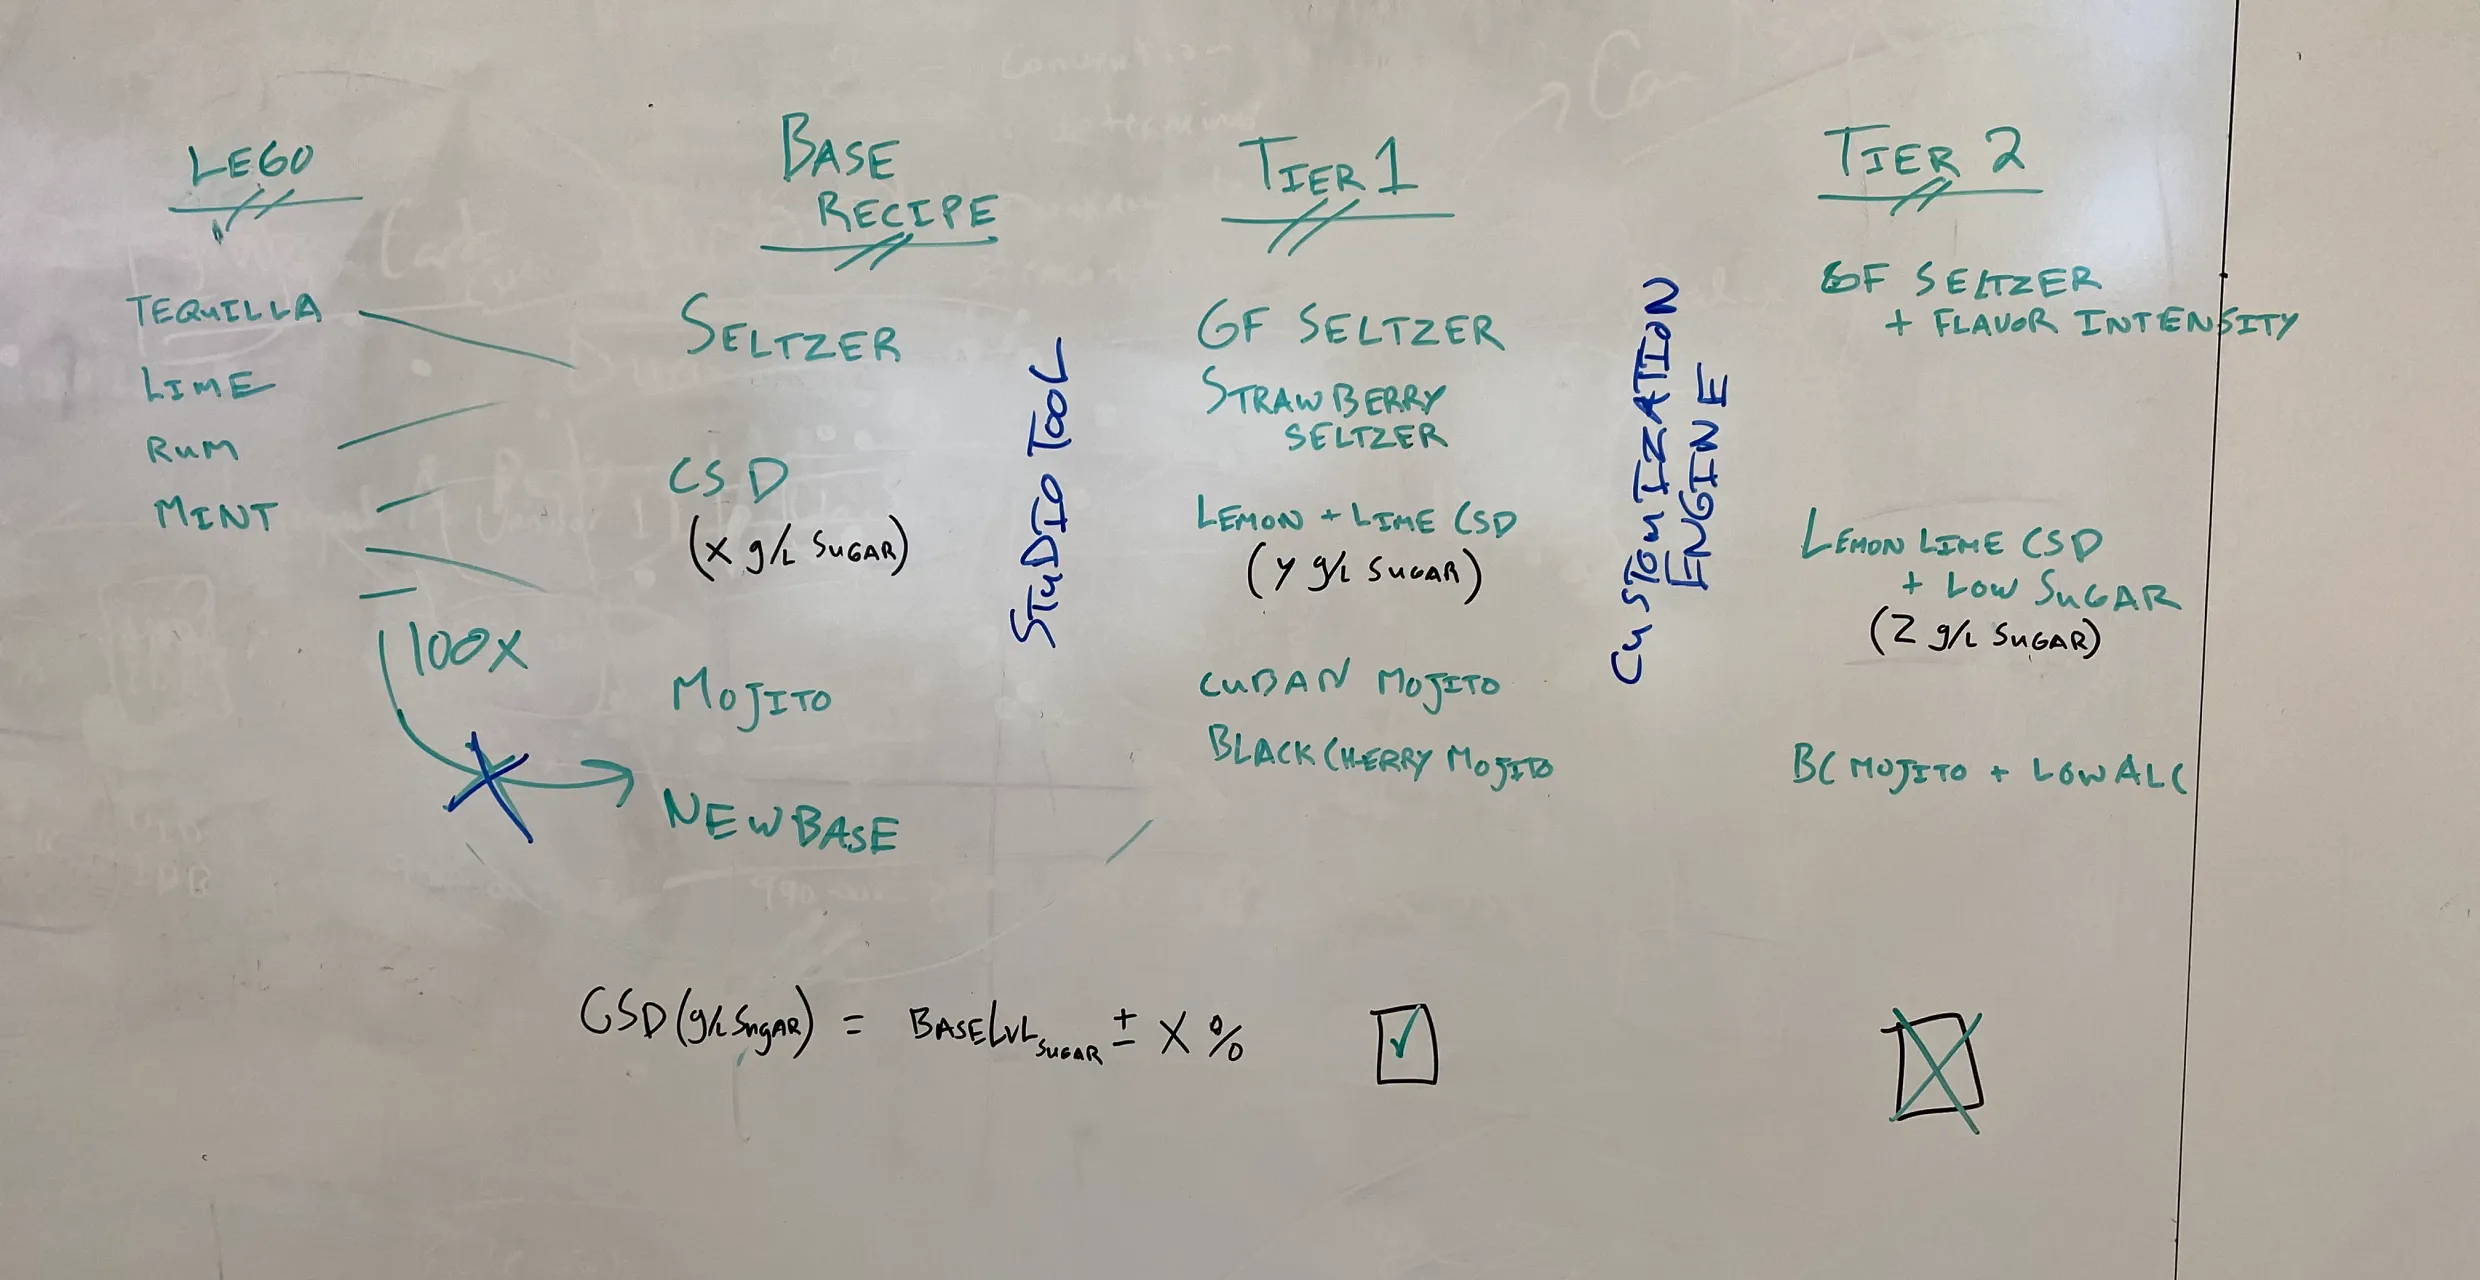 LEGO
TEQUILLA
LIME
RUM
MINT
100X
BASE
RECIPE
SELTZER
CSD
(X g/L SUGAR)
MOJITO
NEW BASE
STUDIO TOOL
TIER 1
GF SELTZER
STRAWBERRY
SELTZER
LEMON + LIME CSD
(Y g/L SUGAR)
CUBAN MOJITO
BLACK CHERRY MOJITO
CUSTOMIZATION
ENGINE
TIER 2
GF SELTZER
+ FLAVOR INTENSITY
LEMON LIME CSD
+ LOW SUGAR
(Z g/L SUGAR)
BC MOJITO + LOW ALC
CSD (g/L SugAR) = BASE LVL SUGAR ± X %